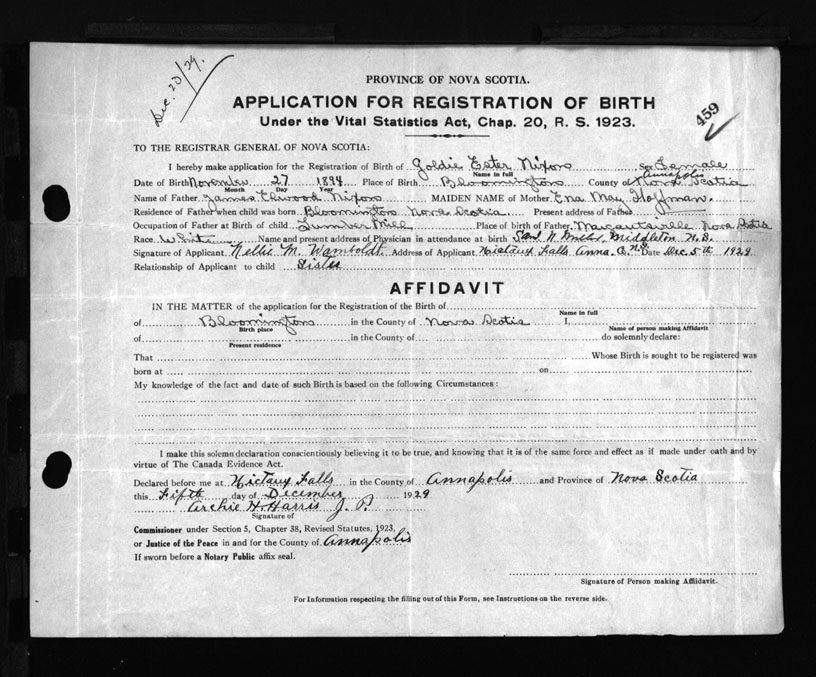 Dec. 20/29.
PROVINCE OF NOVA SCOTIA.
APPLICATION FOR REGISTRATION OF BIRTH
Under the Vital Statistics Act, Chap. 20, R. S. 1923.
459
TO THE REGISTRAR GENERAL OF NOVA SCOTIA:
I hereby make application for the Registration of Birth of Goldie Ester Nixon Sex Female
Name in full
Annapolis
Date of Birth November 27 1894 Place of Birth Bloomington County of Nova Scotia
Month Day Year
Name of Father James Elwood Nixon MAIDEN NAME of Mother Ena May Hoffman.
Residence of Father when child was born Bloomington Nova Scotia Present address of Father
Occupation of Father at Birth of child Lumber Mill Place of birth of Father, Margaretsville Nova Scotia
Race White Name and present address of Physician in attendance at birth Middleton N.S.
Signature of Applicant Nellie M. Wamboldt. Address of Applicant Nictaux Falls Anna. Co. N.S. Date Dec 5th 1929
Relationship of Applicant to child Sister
AFFIDAVIT
IN THE MATTER of the application for the Registration of the Birth of
Name in full
of Bloomington in the County of Nova Scotia I,
Birth place Name of person making Affidavit
of in the County of do solemnly declare:
Present residence
That Whose Birth is sought to be registered was
born at on
My knowledge of the fact and date of such Birth is based on the following Circumstances:
I make this solemn declaration conscientiously believing it to be true, and knowing that it is of the same force and effect as if made under oath and by
virtue of The Canada Evidence Act.
Declared before me at Nictaux Falls in the County of Annapolis and Province of Nova Scotia
this Fifth day of December 1929
Archie H. Harris J. P.
Signature of
Commissioner under Section 5, Chapter 38, Revised Statutes, 1923,
or Justice of the Peace in and for the County of Annapolis
If sworn before a Notary Public affix seal.
Signature of Person making Affidavit.
For Information respecting the filling out of this Form, see Instructions on the reverse side.